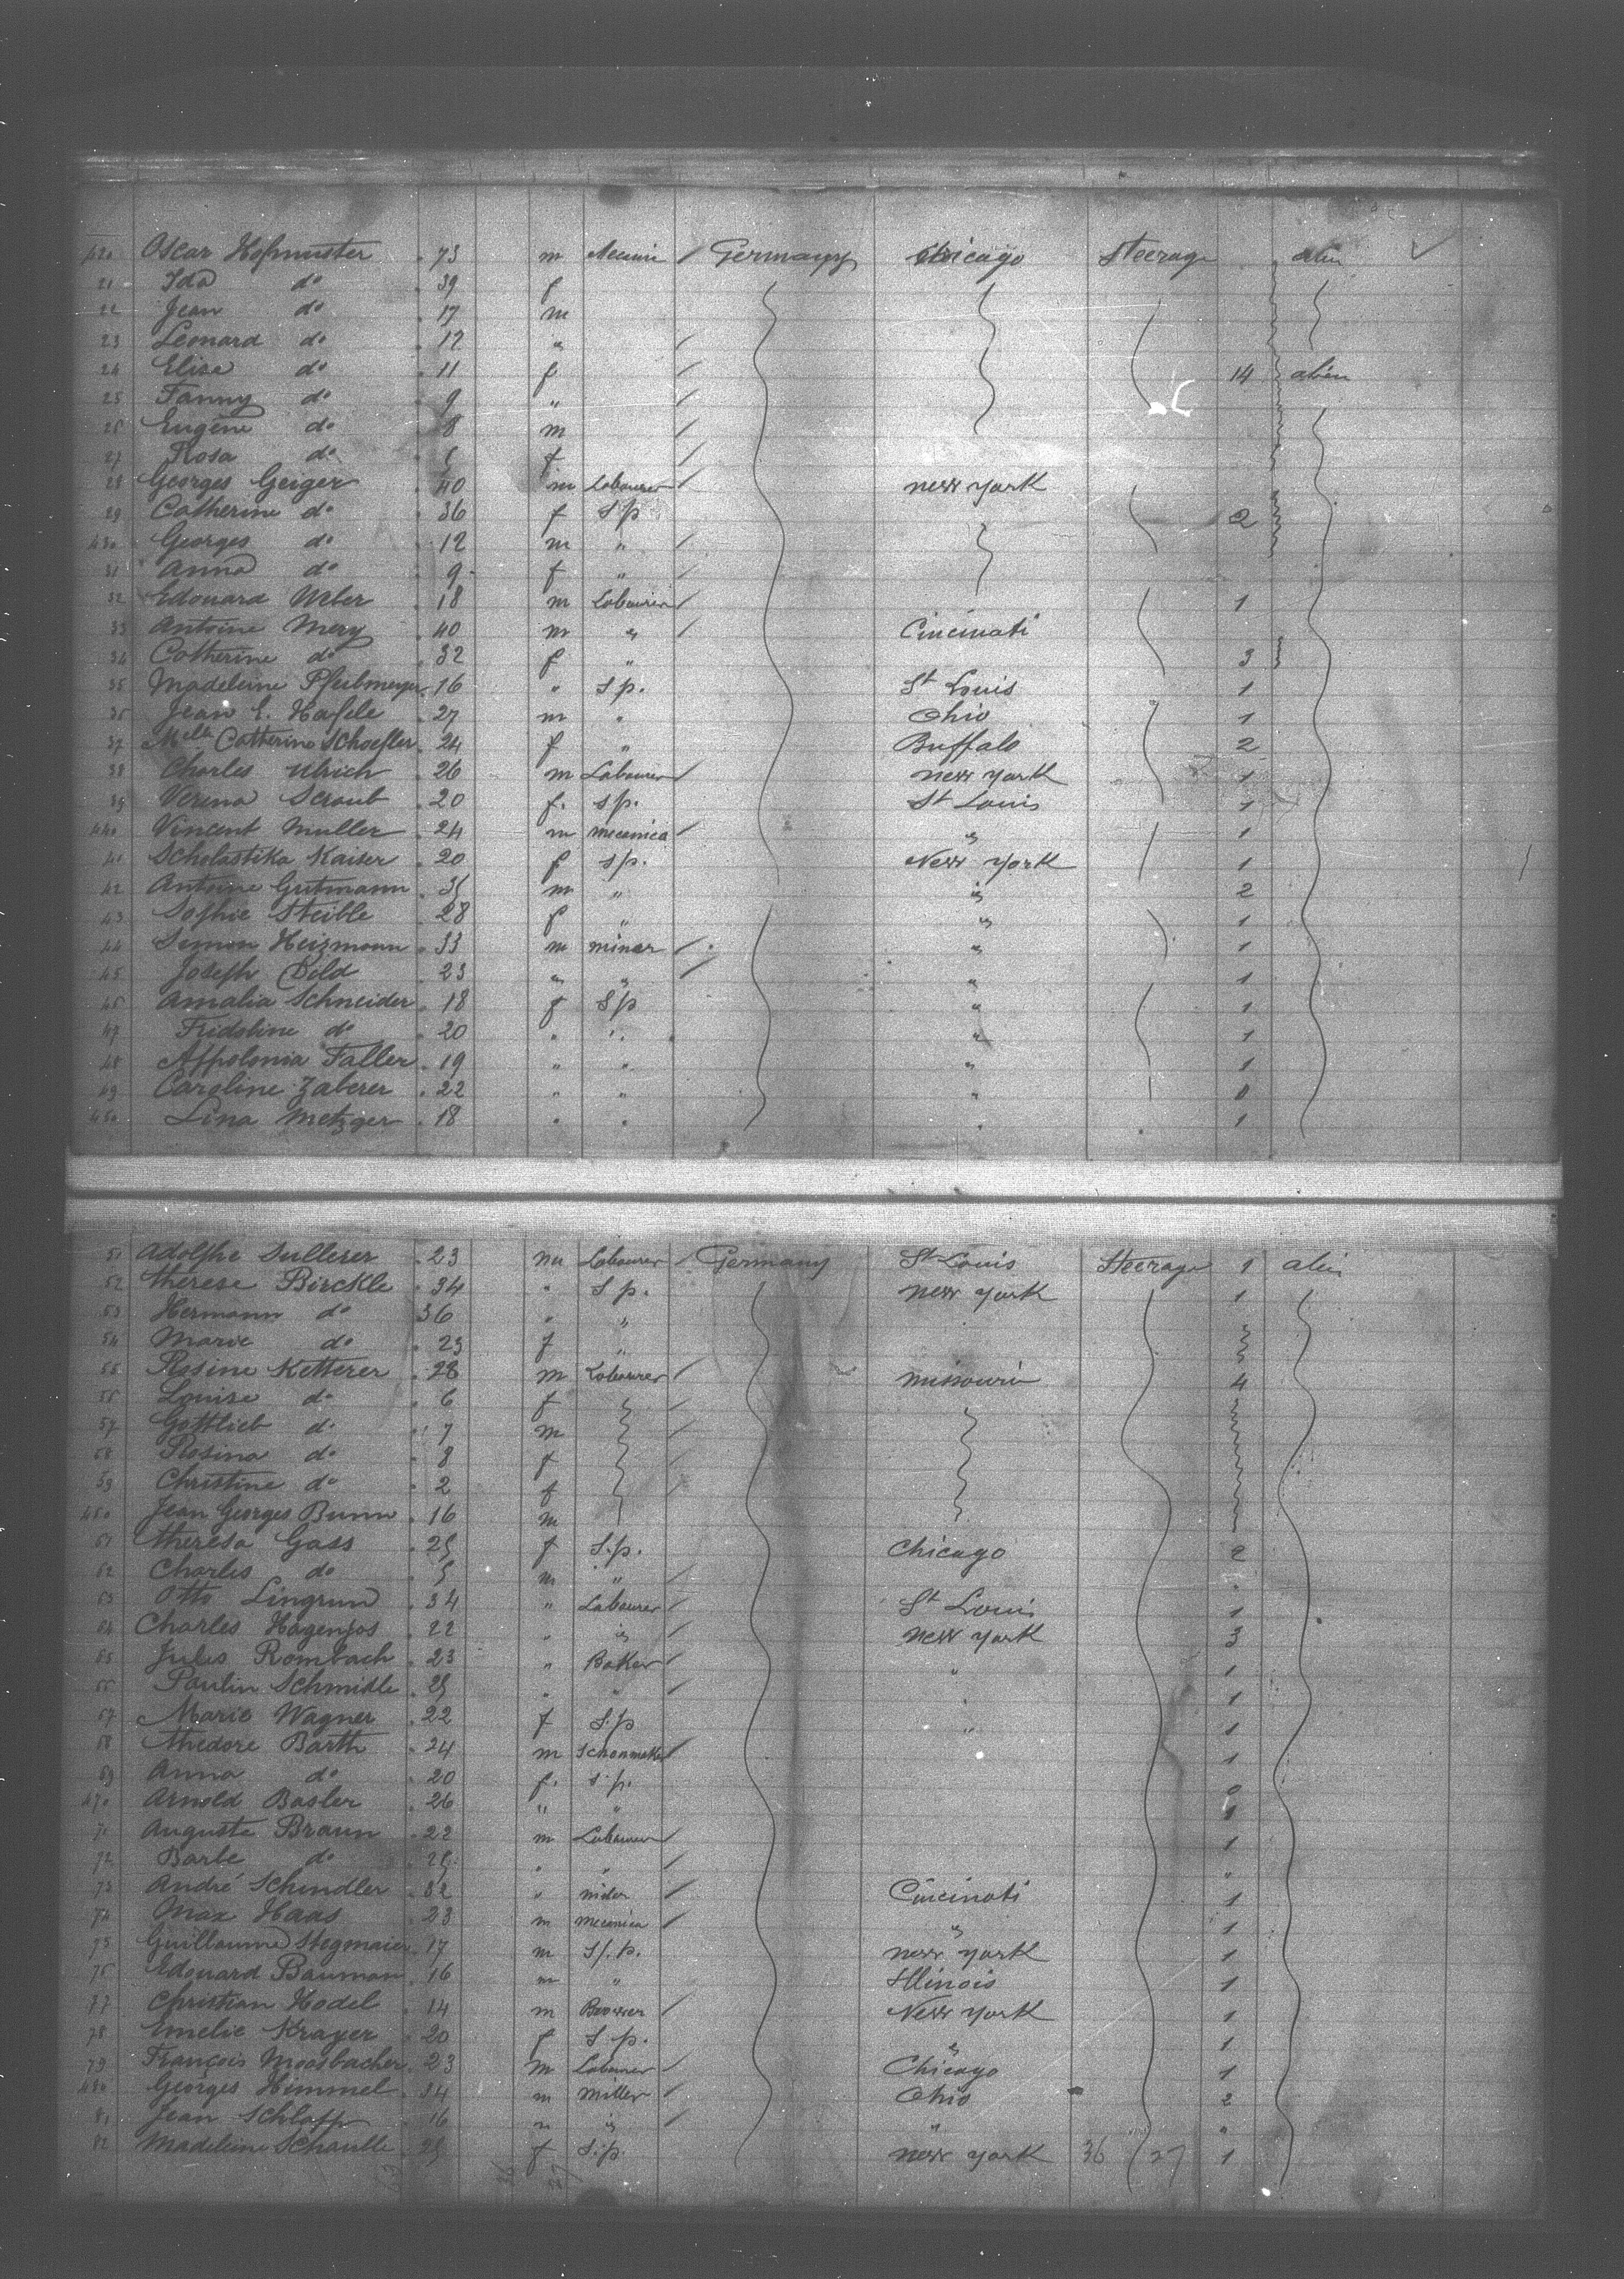 420 Oscar Hofmuster 73 m Mecani / Germany Chicago Steerage alien
21 Ida do 39 f
22 Jean do 17 m
23 Leonard do 12 " /
24 Elise do 11 f / 14 alien
25 Fanny do 9 " /
26 Eugène do 8 m /
27 Rosa do 5 f /
28 Georges Geiger 40 m Labourer / new york
29 Catherine do 36 f Sp 2
430 Georges do 12 m " /
31 Anna do 9 f " /
32 Edouard Weber 18 m Labourer / 1
33 Antoine Mery 40 m " / Cincinati
34 Catherine do 32 f " 3
35 Madeleine 16 " Sp. St Louis 1
36 Jean E. Hafele 27 m " Ohio 1
37 Melle Catherine Schoefler 24 f " Buffalo 2
38 Charles Ulrich 26 m Labourer / new york 1
39 Verena Scraub 20 f. sp. St Louis 1
440 Vincent Muller 24 m mecanica / " 1
41 Scholastika Kaiser 20 f sp. New york 1
42 Antoine Gutmann 35 m " " 2
43 Sophie Steible 28 f " " 1
44 Simon Heizmann 33 m miner / " 1
45 Joseph Dold 23 " " / " 1
46 Amalia Schneider 18 f Sp " 1
47 Fridoline do 20 " " " 1
48 Appolonia Faller 19 " " " 1
49 Caroline Zaberer 22 " " " 0
450 Lina Metzger 18 " " " 1
51 Adolphe Sullerer 23 m Labourer / Germany St Louis Steerage 1 alien
52 therese Birckle 34 " Sp. new york 1
53 Hermann do 36 " "
54 Marie do 23 f "
55 Rosine Ketterer 28 m Labourer / missouri 4
56 Louise do 6 f /
57 Gottlieb do 7 m /
58 Rosina do 8 f /
59 Christine do 2 f /
460 Jean Georges Bunn 16 m
61 theresa Gass 25 f S.p. Chicago 2
62 Charles do 5 m " / "
63 Otto Lingrun 34 " Labourer / St Louis 1
64 Charles Hagenjos 22 " " / new york 3
65 Jules Rombach 23 " Baker / " 1
66 Paulin Schmidle 25 " " / " 1
67 Marie Wagner 22 f S.p " 1
68 thedore Barth 24 m Schonmaker / 1
69 Anna do 20 f. s.p. 0
470 Arnold Basler 26 " " 1
71 Auguste Braun 22 m Labourer / 1
72 Barbe do " " / "
73 André Schindler 32 " / Cincinati 1
74 Max Haas 23 m mecanica / " 1
75 Guillaume Stegmaier 17 m S.p. new york 1
76 Edouard Bauman 16 m " Illinois 1
77 Christian Hodel 14 m / New york 1
78 Emelie Krayer 20 f S.p. " 1
79 François Moosbacher 23 m Labourer / Chicago 1
480 Georges Himmel 34 m Miller / Ohio 2
81 Jean Schlapp 16 " " / " "
82 Madeleine Schaulle 25 f S.p. new york 36 27 1